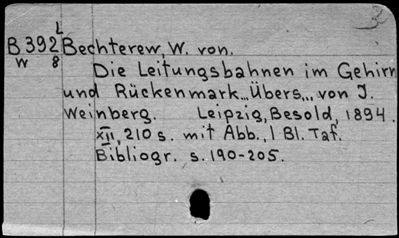 L 3
B 392 Bechterew, W. von.
W 8
Die Leitungsbahnen im Gehirn
und Rückenmark... Übers... von J.
Weinberg. Leipzig, Besold, 1894.
XII, 210 s. mit Abb., 1 Bl. Taf.
Bibliogr. s. 190-205.